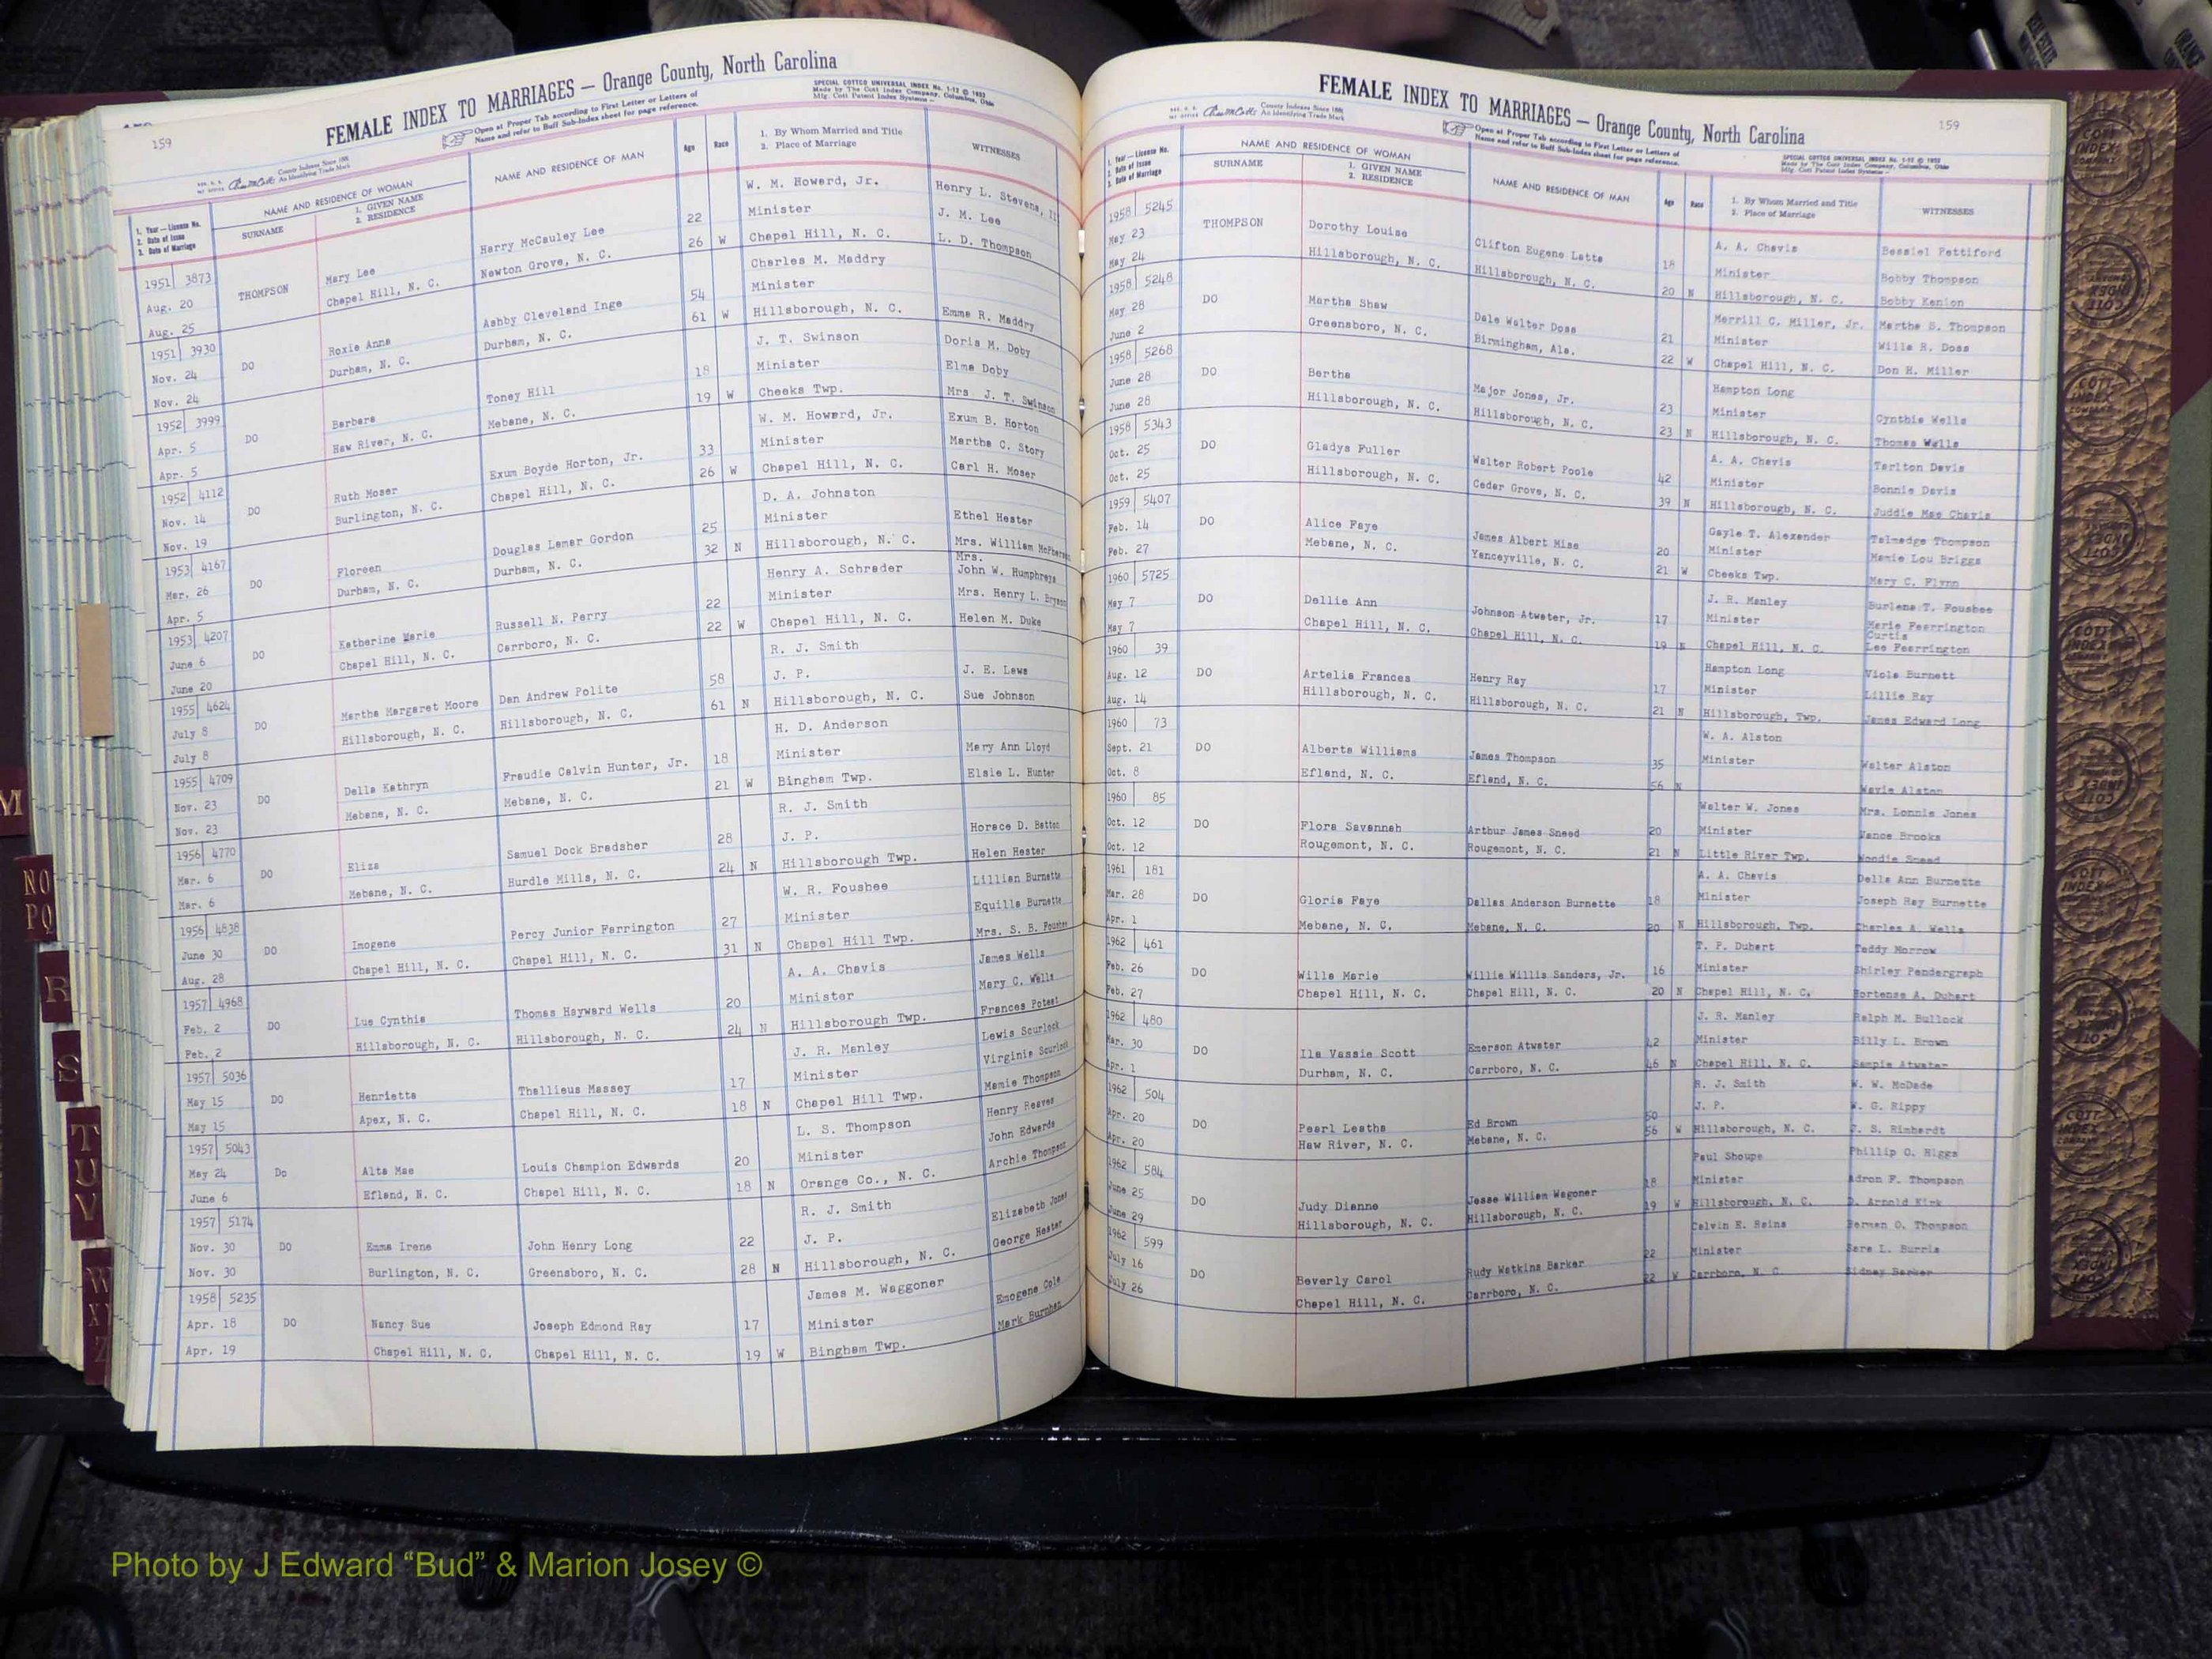 159
FEMALE INDEX TO MARRIAGES — Orange County, North Carolina
Open at Proper Tab according to First Letter or Letters of
Name and refer to Buff Sub-Index sheet for page reference.
SPECIAL COTTCO UNIVERSAL INDEX No. 1-12 © 1952
Made by The Cott Index Company, Columbus, Ohio
Mfg. Cott Patent Index Systems
County Indexes Since 1888
An Identifying Trade Mark
1. Year — License No.
2. Date of Issue
3. Date of Marriage
NAME AND RESIDENCE OF WOMAN
SURNAME
1. GIVEN NAME
2. RESIDENCE
NAME AND RESIDENCE OF MAN
Age
Race
1. By Whom Married and Title
2. Place of Marriage
WITNESSES
1951 3873 W. M. Howard, Jr. Henry L. Stevens,
Aug. 20 THOMPSON Mary Lee Harry McCauley Lee 22 Minister J. M. Lee
Aug. 25 Chapel Hill, N. C. Newton Grove, N. C. 26 W Chapel Hill, N. C. L. D. Thompson
1951 3930 Charles M. Maddry
Nov. 24 DO Roxie Anna Ashby Cleveland Inge 54 Minister
Nov. 24 Durham, N. C. Durham, N. C. 61 W Hillsborough, N. C. Emma R. Maddry
1952 3999 J. T. Swinson Doris M. Doby
Apr. 5 DO Barbara Toney Hill 18 Minister Elma Doby
Apr. 5 Haw River, N. C. Mebane, N. C. 19 W Cheeks Twp. Mrs. J. T. Swinson
1952 4112 W. M. Howard, Jr. Exum B. Horton
Nov. 14 DO Ruth Moser Exum Boyde Horton, Jr. 33 Minister Martha C. Story
Nov. 19 Burlington, N. C. Chapel Hill, N. C. 26 W Chapel Hill, N. C. Carl H. Moser
1953 4167 D. A. Johnston
Mar. 26 DO Floreen Douglas Lamar Gordon 25 Minister Ethel Hester
Apr. 5 Durham, N. C. Durham, N. C. 32 N Hillsborough, N. C. Mrs. William McPherson
1953 4207 Henry A. Schrader Mrs. John W. Humphreys
June 6 DO Katherine Marie Russell N. Perry 22 Minister Mrs. Henry L. Bryson
June 20 Chapel Hill, N. C. Carrboro, N. C. 22 W Chapel Hill, N. C. Helen M. Duke
1955 4624 R. J. Smith
July 8 DO Martha Margaret Moore Dan Andrew Polite 58 J. P. J. E. Laws
July 8 Hillsborough, N. C. Hillsborough, N. C. 61 N Hillsborough, N. C. Sue Johnson
1955 4709 H. D. Anderson
Nov. 23 DO Della Kathryn Fraudie Calvin Hunter, Jr. 18 Minister Mary Ann Lloyd
Nov. 23 Mebane, N. C. Mebane, N. C. 21 W Bingham Twp. Elsie L. Hunter
1956 4770 R. J. Smith
Mar. 6 DO Eliza Samuel Dock Bradsher 28 J. P. Horace D. Batton
Mar. 6 Mebane, N. C. Hurdle Mills, N. C. 24 N Hillsborough Twp. Helen Hester
1956 4838 W. R. Foushee Lillian Burnette
June 30 DO Imogene Percy Junior Farrington 27 Minister Equilla Burnette
Aug. 28 Chapel Hill, N. C. Chapel Hill, N. C. 31 N Chapel Hill Twp. Mrs. S. B. Foushee
1957 4968 A. A. Chavis James Wells
Feb. 2 DO Lue Cynthia Thomas Hayward Wells 20 Minister Mary C. Wells
Feb. 2 Hillsborough, N. C. Hillsborough, N. C. 24 N Hillsborough Twp. Frances Poteat
1957 5036 J. R. Manley Lewis Scurlock
May 15 DO Henrietta Thallieus Massey 17 Minister Virginia Scurlock
May 15 Apex, N. C. Chapel Hill, N. C. 18 N Chapel Hill Twp. Mamie Thompson
1957 5043 L. S. Thompson Henry Reaves
May 24 Do Alta Mae Louis Champion Edwards 20 Minister John Edwards
June 6 Efland, N. C. Chapel Hill, N. C. 18 N Orange Co., N. C. Archie Thompson
1957 5174 R. J. Smith
Nov. 30 DO Emma Irene John Henry Long 22 J. P. Elizabeth Jones
Nov. 30 Burlington, N. C. Greensboro, N. C. 28 N Hillsborough, N. C. George Hester
1958 5235 James M. Waggoner
Apr. 18 DO Nancy Sue Joseph Edmond Ray 17 Minister Emogene Cole
Apr. 19 Chapel Hill, N. C. Chapel Hill, N. C. 19 W Bingham Twp. Mark Burnham
159
FEMALE INDEX TO MARRIAGES — Orange County, North Carolina
County Indexes Since 1888
An Identifying Trade Mark
Open at Proper Tab according to First Letter or Letters of
Name and refer to Buff Sub-Index sheet for page reference.
SPECIAL COTTCO UNIVERSAL INDEX No. 1-12 © 1952
Made by The Cott Index Company, Columbus, Ohio
Mfg. Cott Patent Index Systems
1. Year — License No.
2. Date of Issue
3. Date of Marriage
NAME AND RESIDENCE OF WOMAN
SURNAME
1. GIVEN NAME
2. RESIDENCE
NAME AND RESIDENCE OF MAN
Age
Race
1. By Whom Married and Title
2. Place of Marriage
WITNESSES
1958 5245 A. A. Chavis Bessiel Pettiford
May 23 THOMPSON Dorothy Louise Clifton Eugene Latta 18 Minister Bobby Thompson
May 24 Hillsborough, N. C. Hillsborough, N. C. 20 N Hillsborough, N. C. Bobby Kenion
1958 5248 Merrill C. Miller, Jr. Martha S. Thompson
May 28 DO Martha Shaw Dale Walter Doss 21 Minister Willa R. Doss
June 2 Greensboro, N. C. Birmingham, Ala. 22 W Chapel Hill, N. C. Don H. Miller
1958 5268 Hampton Long
June 28 DO Bertha Major Jones, Jr. 23 Minister Cynthia Wells
June 28 Hillsborough, N. C. Hillsborough, N. C. 23 N Hillsborough, N. C. Thomas Wells
1958 5343 A. A. Chavis Tarlton Davis
Oct. 25 DO Gladys Fuller Walter Robert Poole 42 Minister Bonnie Davis
Oct. 25 Hillsborough, N. C. Cedar Grove, N. C. 39 N Hillsborough, N. C. Juddie Mae Chavis
1959 5407 Gayle T. Alexander Talmadge Thompson
Feb. 14 DO Alice Faye James Albert Mise 20 Minister Mamie Lou Briggs
Feb. 27 Mebane, N. C. Yanceyville, N. C. 21 W Cheeks Twp. Mary C. Flynn
1960 5725 J. R. Manley Burlene T. Foushee
May 7 DO Dellie Ann Johnson Atwater, Jr. 17 Minister Marie Fearrington
May 7 Chapel Hill, N. C. Chapel Hill, N. C. 19 N Chapel Hill, N. C. Curtis Lee Fearrington
1960 39 Hampton Long Viola Burnett
Aug. 12 DO Artelia Frances Henry Ray 17 Minister Lillie Ray
Aug. 14 Hillsborough, N. C. Hillsborough, N. C. 21 N Hillsborough, Twp. James Edward Long
1960 73 W. A. Alston
Sept. 21 DO Alberta Williams James Thompson 35 Minister Walter Alston
Oct. 8 Efland, N. C. Efland, N. C. 56 N Mavie Alston
1960 85 Walter W. Jones Mrs. Lonnie Jones
Oct. 12 DO Flora Savannah Arthur James Sneed 20 Minister Vance Brooks
Oct. 12 Rougemont, N. C. Rougemont, N. C. 21 N Little River Twp. Sneed
1961 181 A. A. Chavis Della Ann Burnette
Mar. 28 DO Gloria Faye Dallas Anderson Burnette 18 Minister Joseph Ray Burnette
Apr. 1 Mebane, N. C. Mebane, N. C. 20 N Hillsborough, Twp. Charles A. Wells
1962 461 T. P. Duhart Teddy Morrow
Feb. 26 DO Willa Marie Willie Willis Sanders, Jr. 16 Minister Shirley Pendergraph
Feb. 27 Chapel Hill, N. C. Chapel Hill, N. C. 20 N Chapel Hill, N. C. Hortense A. Duhart
1962 480 J. R. Manley Ralph M. Bullock
Mar. 30 DO Ila Vassie Scott Emerson Atwater 42 Minister Billy L. Brown
Apr. 1 Durham, N. C. Carrboro, N. C. 46 N Chapel Hill, N. C. Sample Atwater
1962 504 R. J. Smith W. W. McDade
Apr. 20 DO Pearl Leatha Ed Brown 50 J. P. W. G. Rippy
Apr. 20 Haw River, N. C. Mebane, N. C. 56 W Hillsborough, N. C. J. S. Rinhardt
1962 584 Paul Shoupe Phillip O. Higgs
June 25 DO Judy Dianne Jesse William Wagoner 18 Minister Adron F. Thompson
June 29 Hillsborough, N. C. Hillsborough, N. C. 19 W Hillsborough, N. C. D. Arnold Kirk
1962 599 Calvin E. Hains Herman O. Thompson
July 16 DO Beverly Carol Rudy Watkins Barker 22 Minister Sara L. Burris
July 26 Chapel Hill, N. C. Carrboro, N. C. 22 W Carrboro, N. C. Sidney Barker
M
NO
PQ
R
S
T
U
V
W
X
Z
COTT INDEX COMPANY
Photo by J Edward “Bud” & Marion Josey ©